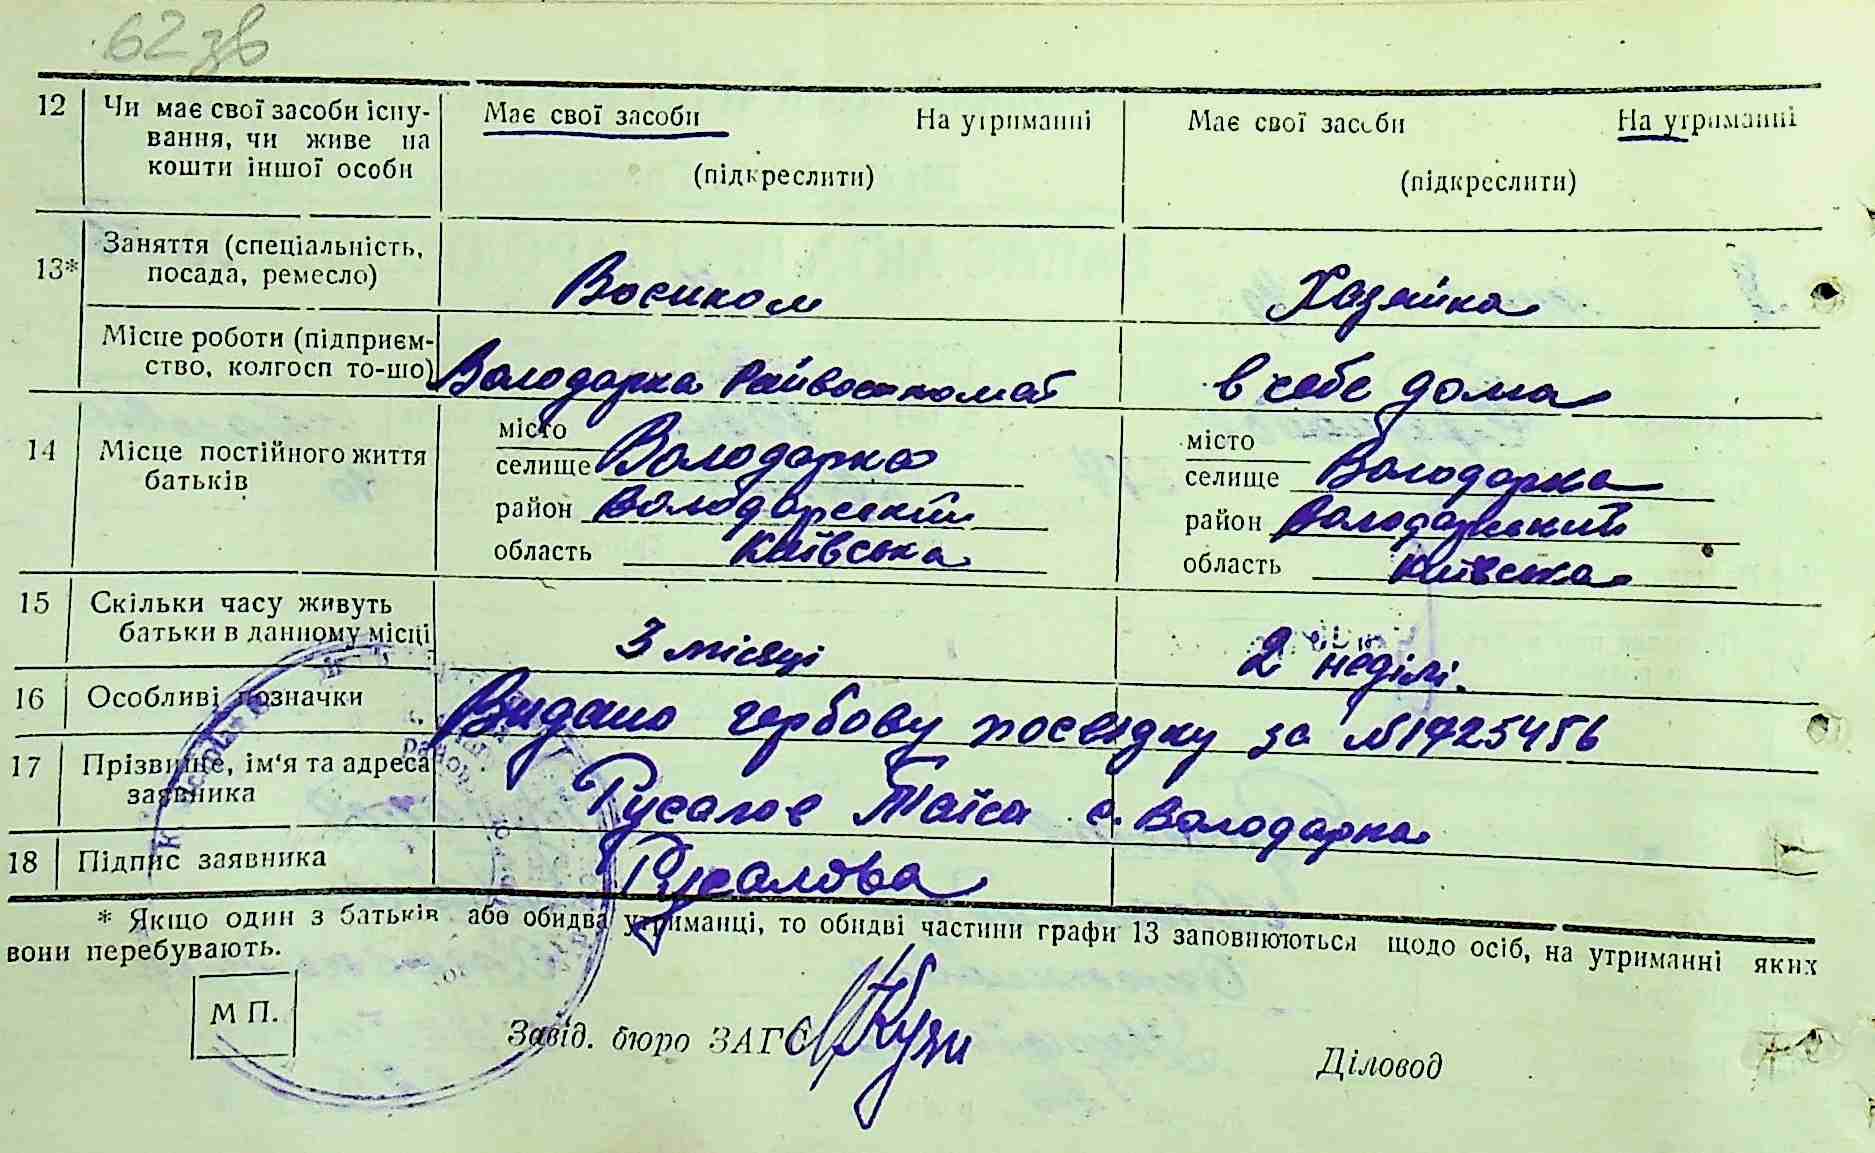 62 зв
12 Чи має свої засоби існу- Має свої засоби На утриманні Має свої засоби На утриманні
вання, чи живе на
кошти іншої особи (підкреслити) (підкреслити)
13* Заняття (спеціальність,
посада, ремесло) Воєнком Хазяйка
Місце роботи (підприєм-
ство, колгосп то-що) Володарка Райвоєнкомат в себе дома
14 Місце постійного життя батьків
місто місто
селище Володарка селище Володарка
район Володарський район Володарський
область Київська область Київська
15 Скільки часу живуть
батьки в данному місці 3 місяці 2 неділі.
16 Особливі позначки Видано гербову посвідку за №1925456
17 Прізвище, ім'я та адреса
заявника Русалов Таїса с. Володарка
18 Підпис заявника Русалова
* Якщо один з батьків або обидва утриманці, то обидві частини графи 13 заповнюються щодо осіб, на утриманні яких
вони перебувають.
М П.
Завід. бюро ЗАГС
Діловод